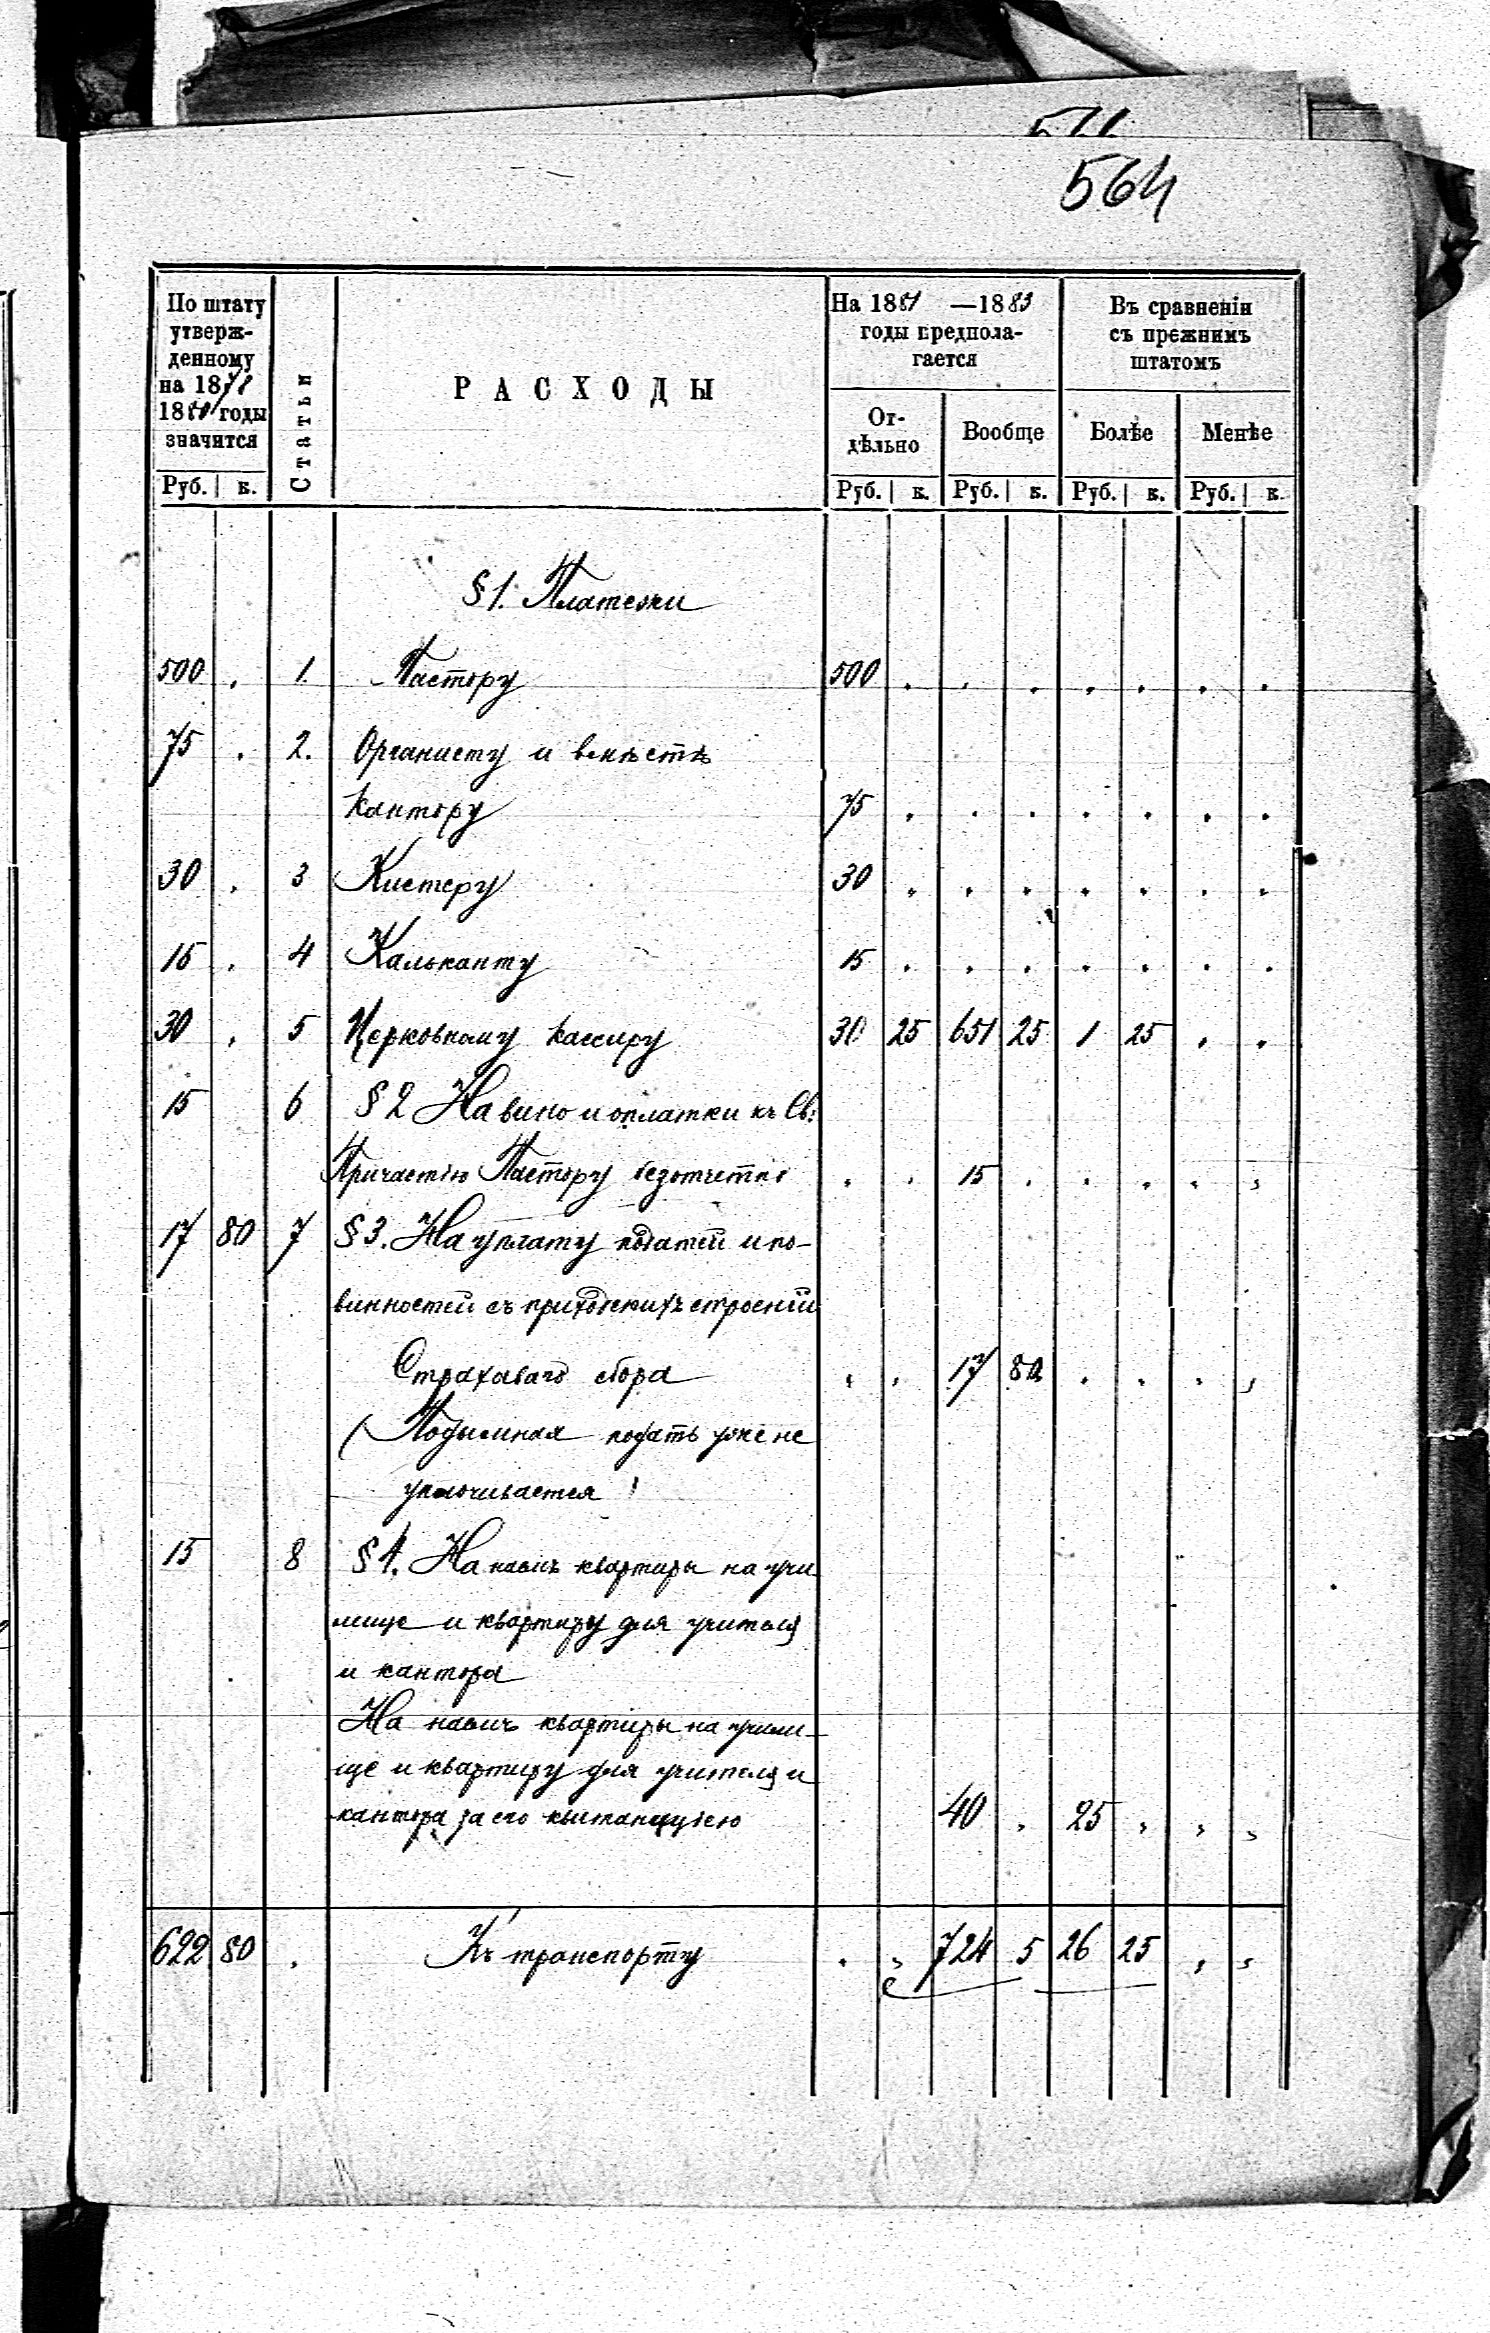 564
По штату
утверж-
денному
на 1878
1880 годы
значится
Статьи
РАСХОДЫ
На 1881 —1883
годы предпола-
гается
Въ сравненіи
съ прежнимъ
штатомъ
От-
дѣльно
Вообще
Болѣе
Менѣе
Руб. к. Руб. к. Руб. к. Руб. к. Руб. к.
§ 1. Платежи
500 . 1 Пастору 500 . . . . . . .
75 . 2. Органисту и вмѣстѣ
кантору 75 . . . . . . .
30 . 3 Кистеру 30 . . . . . . .
15 . 4 Кальканту 15 . . . . . . .
30 . 5 Церковному кассиру 30 25 651 25 1 25 . .
15 6 § 2 На вино и оплатки къ Св:
Причастію Пастору безотчетно . . 15 . . . . .
17 80 7 § 3. На уплату податей и по-
винностей съ приходскихъ строеній
Страховаго сбора . . 17 80 . . . .
(Подымная подать уже не
уплочивается)
15 8 § 4. На наемъ квартиры на учи
лище и квартиру для учителя
и кантора
На наемъ квартиры на учили-
ще и квартиру для учителя и
кантора за его квитанцією 40 . 25 . . .
622 80 . Къ транспорту . . 724 5 26 25 . .